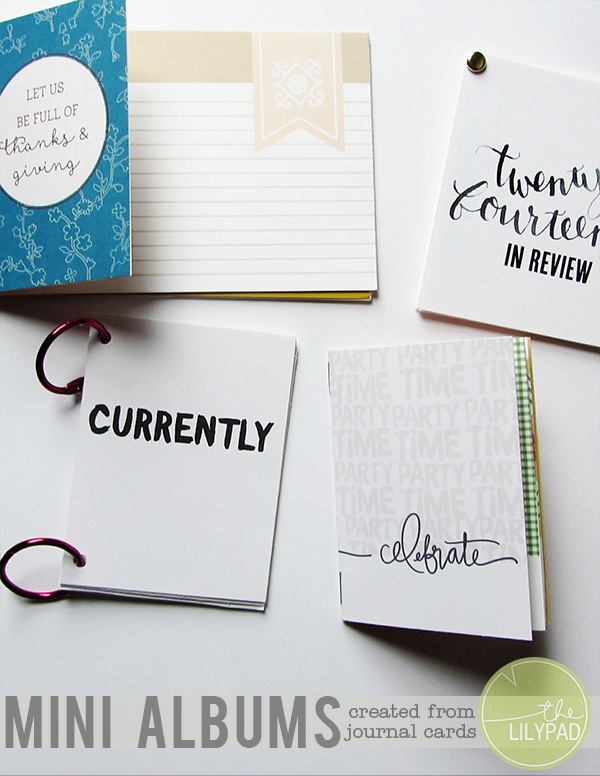 LET US
BE FULL OF
thanks &
giving
twenty
fourteen
IN REVIEW
CURRENTLY
PARTY PARTY PARTY
TIME TIME TIM
PARTY PARTY PAR
TIME TIME TIM
PARTY PARTY PAR
TIME TIME TIM
PARTY PARTY
celebrate
MINI ALBUMS
created from
journal cards
the
LILYPAD